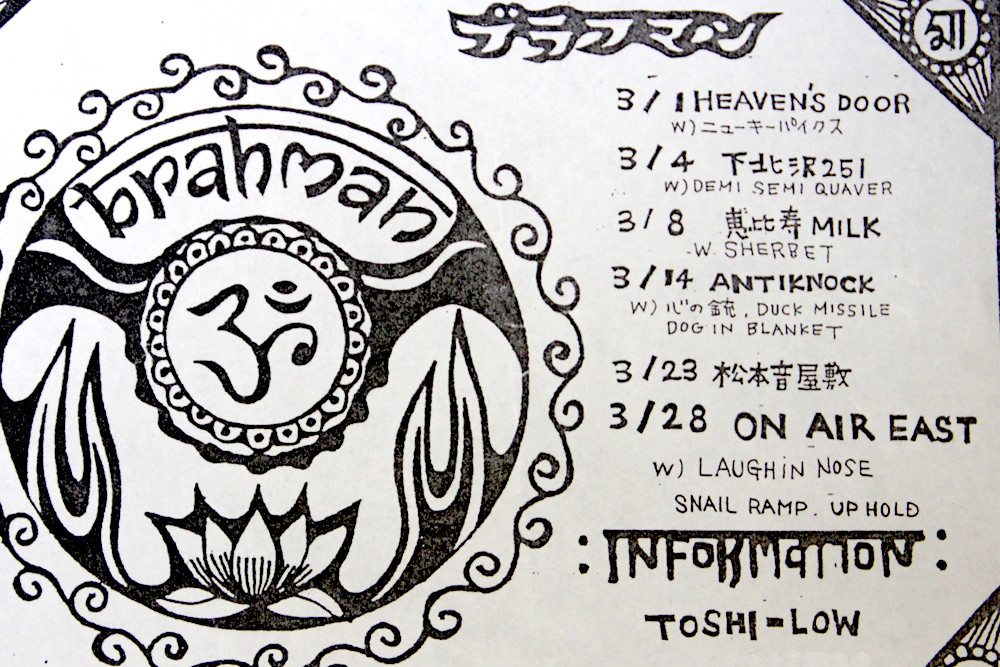 ブラフマン
brahman
ॐ
3/1 HEAVEN'S DOOR
W) ニューキーパイクス
3/4 下北沢251
W) DEMI SEMI QUAVER
3/8 恵比寿 MILK
W. SHERBET
3/14 ANTIKNOCK
W) 心の銃, DUCK MISSILE
DOG IN BLANKET
3/23 松本音屋敷
3/28 ON AIR EAST
W) LAUGHiN NOSE
SNAIL RAMP. UP HOLD
: INFORMATION :
TOSHI-LOW